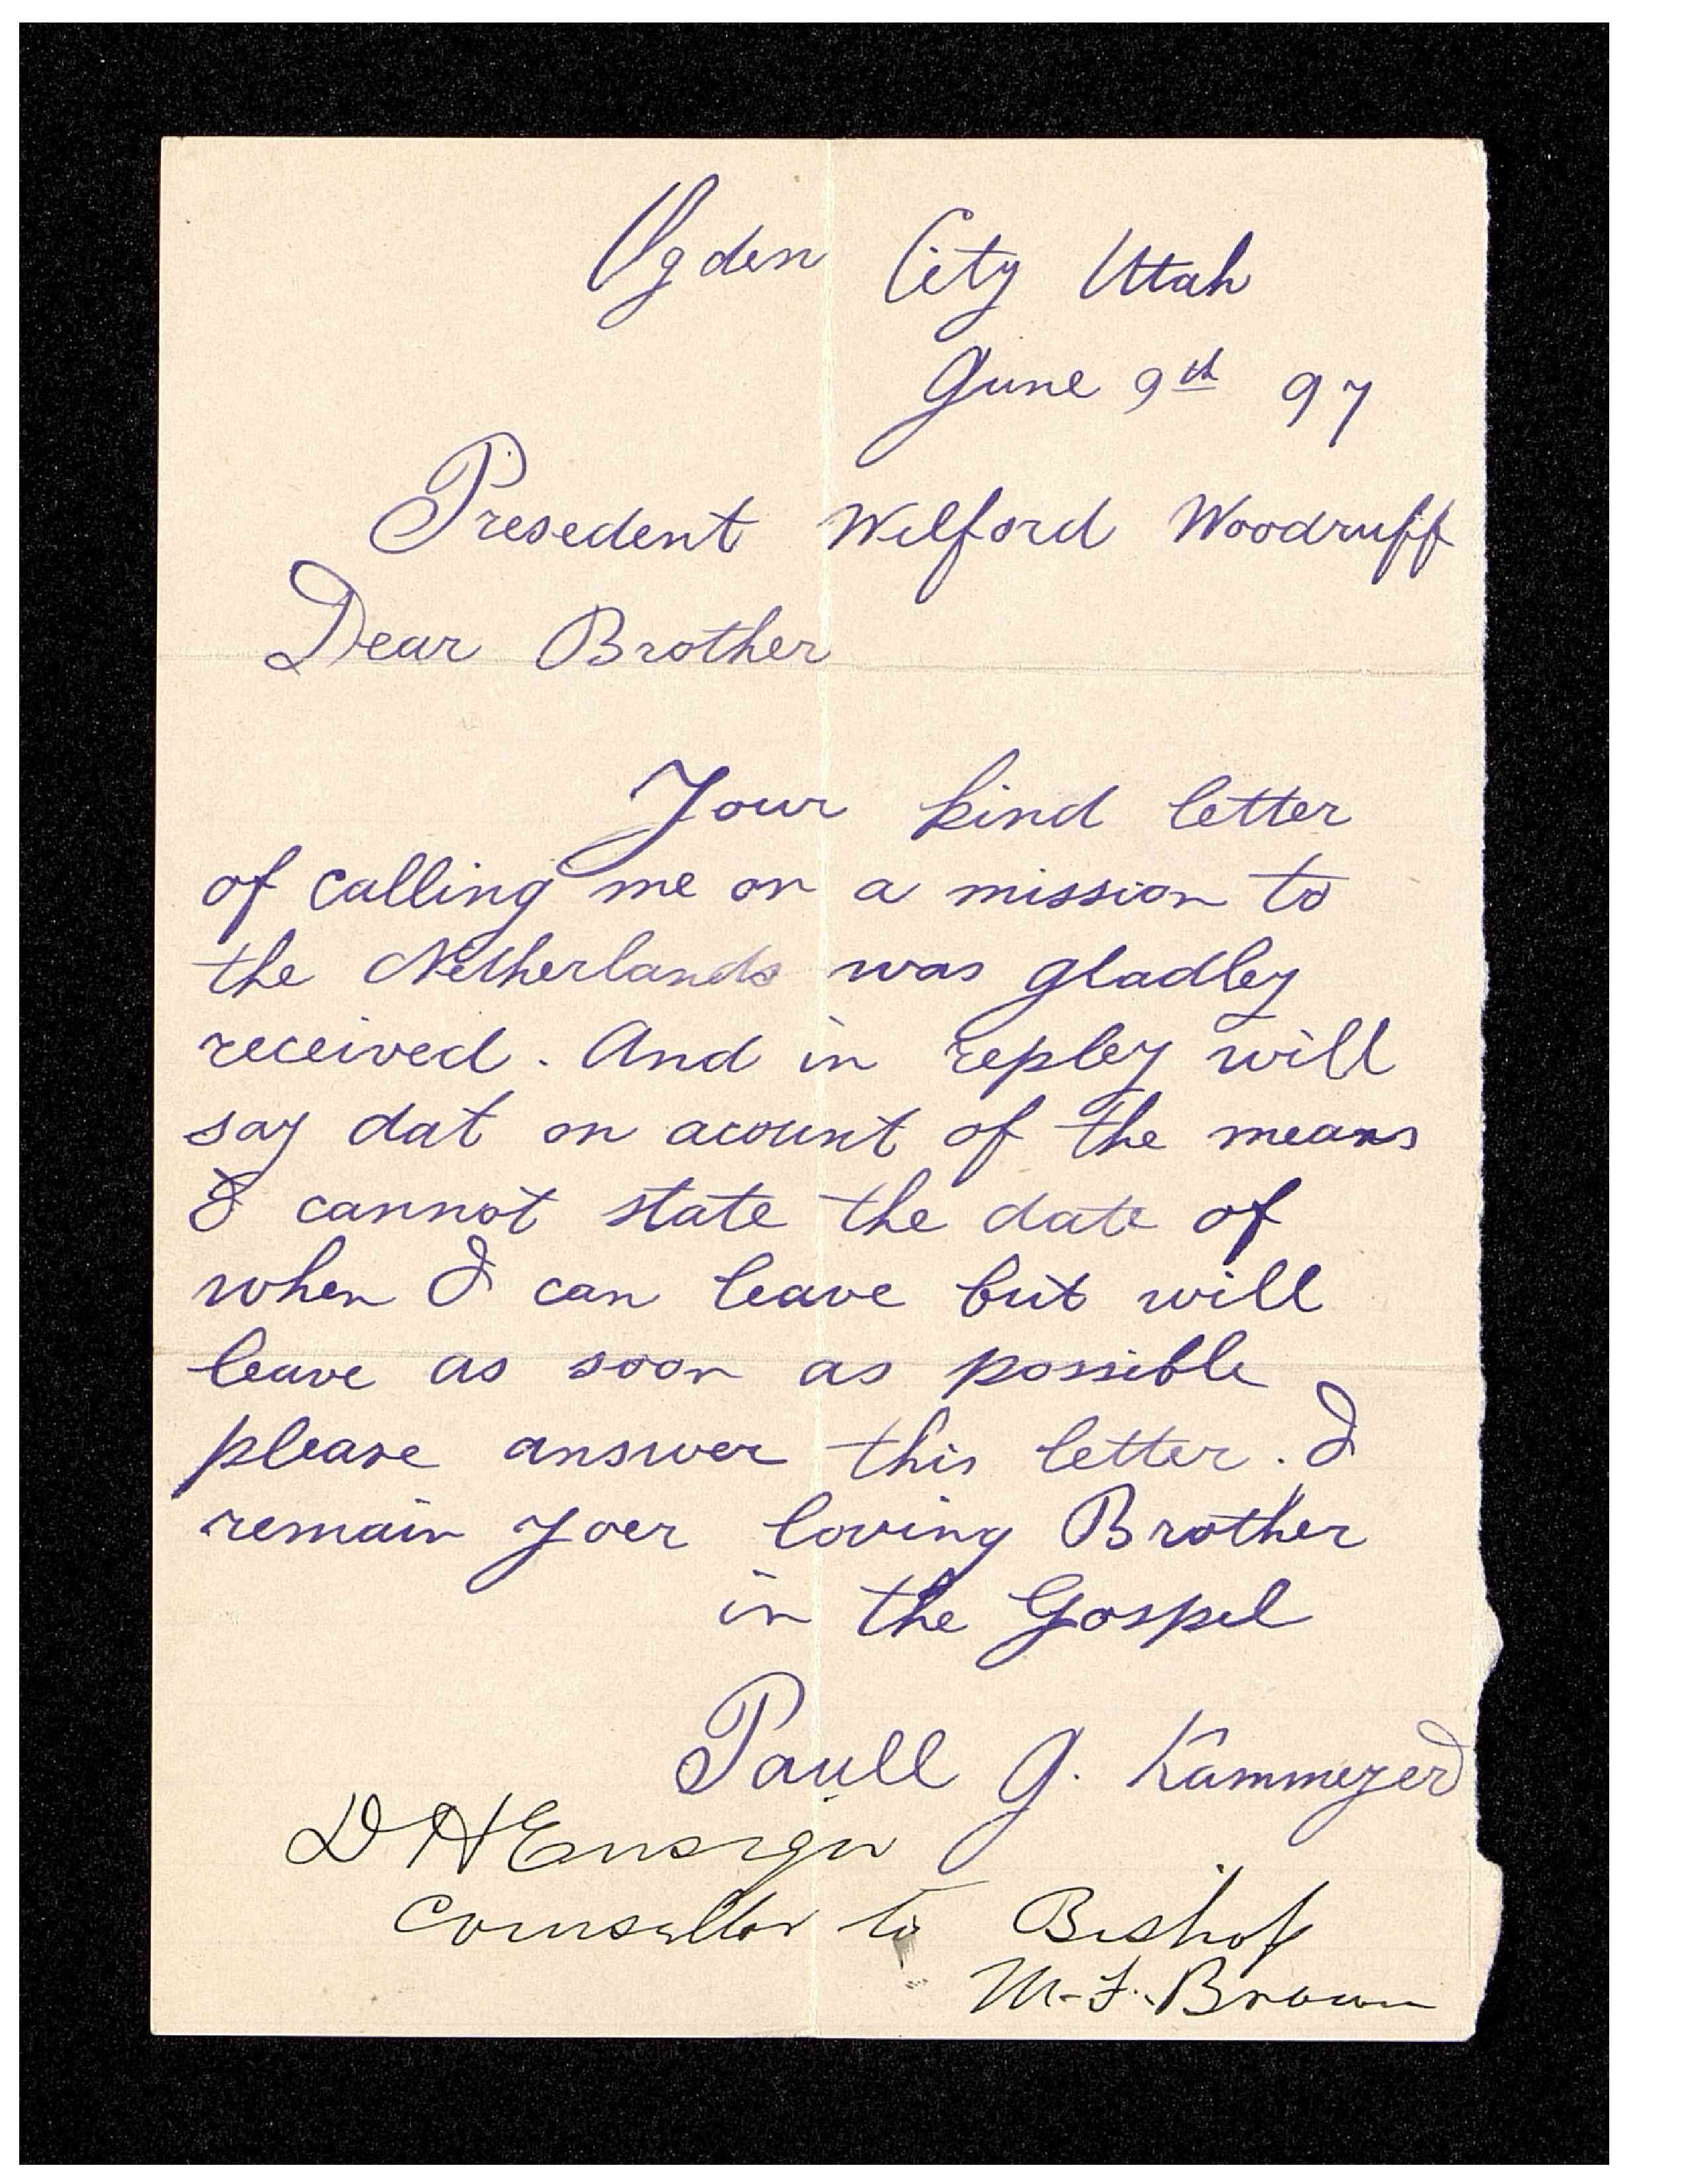 Ogden City Utah
June 9th 97
Presedent Wilford Woodruff
Dear Brother
Your kind letter
of calling me on a mission to
the Netherlands was gladley
received. And in repley will
say dat on acount of the means
I cannot state the date of
when I can leave but will
leave as soon as possible
please answer this letter. I
remain Yoer loving Brother
in the Gospel
Paull G. Kammeyer
D H Ensign
Counsellor to Bishop
M. F. Brown